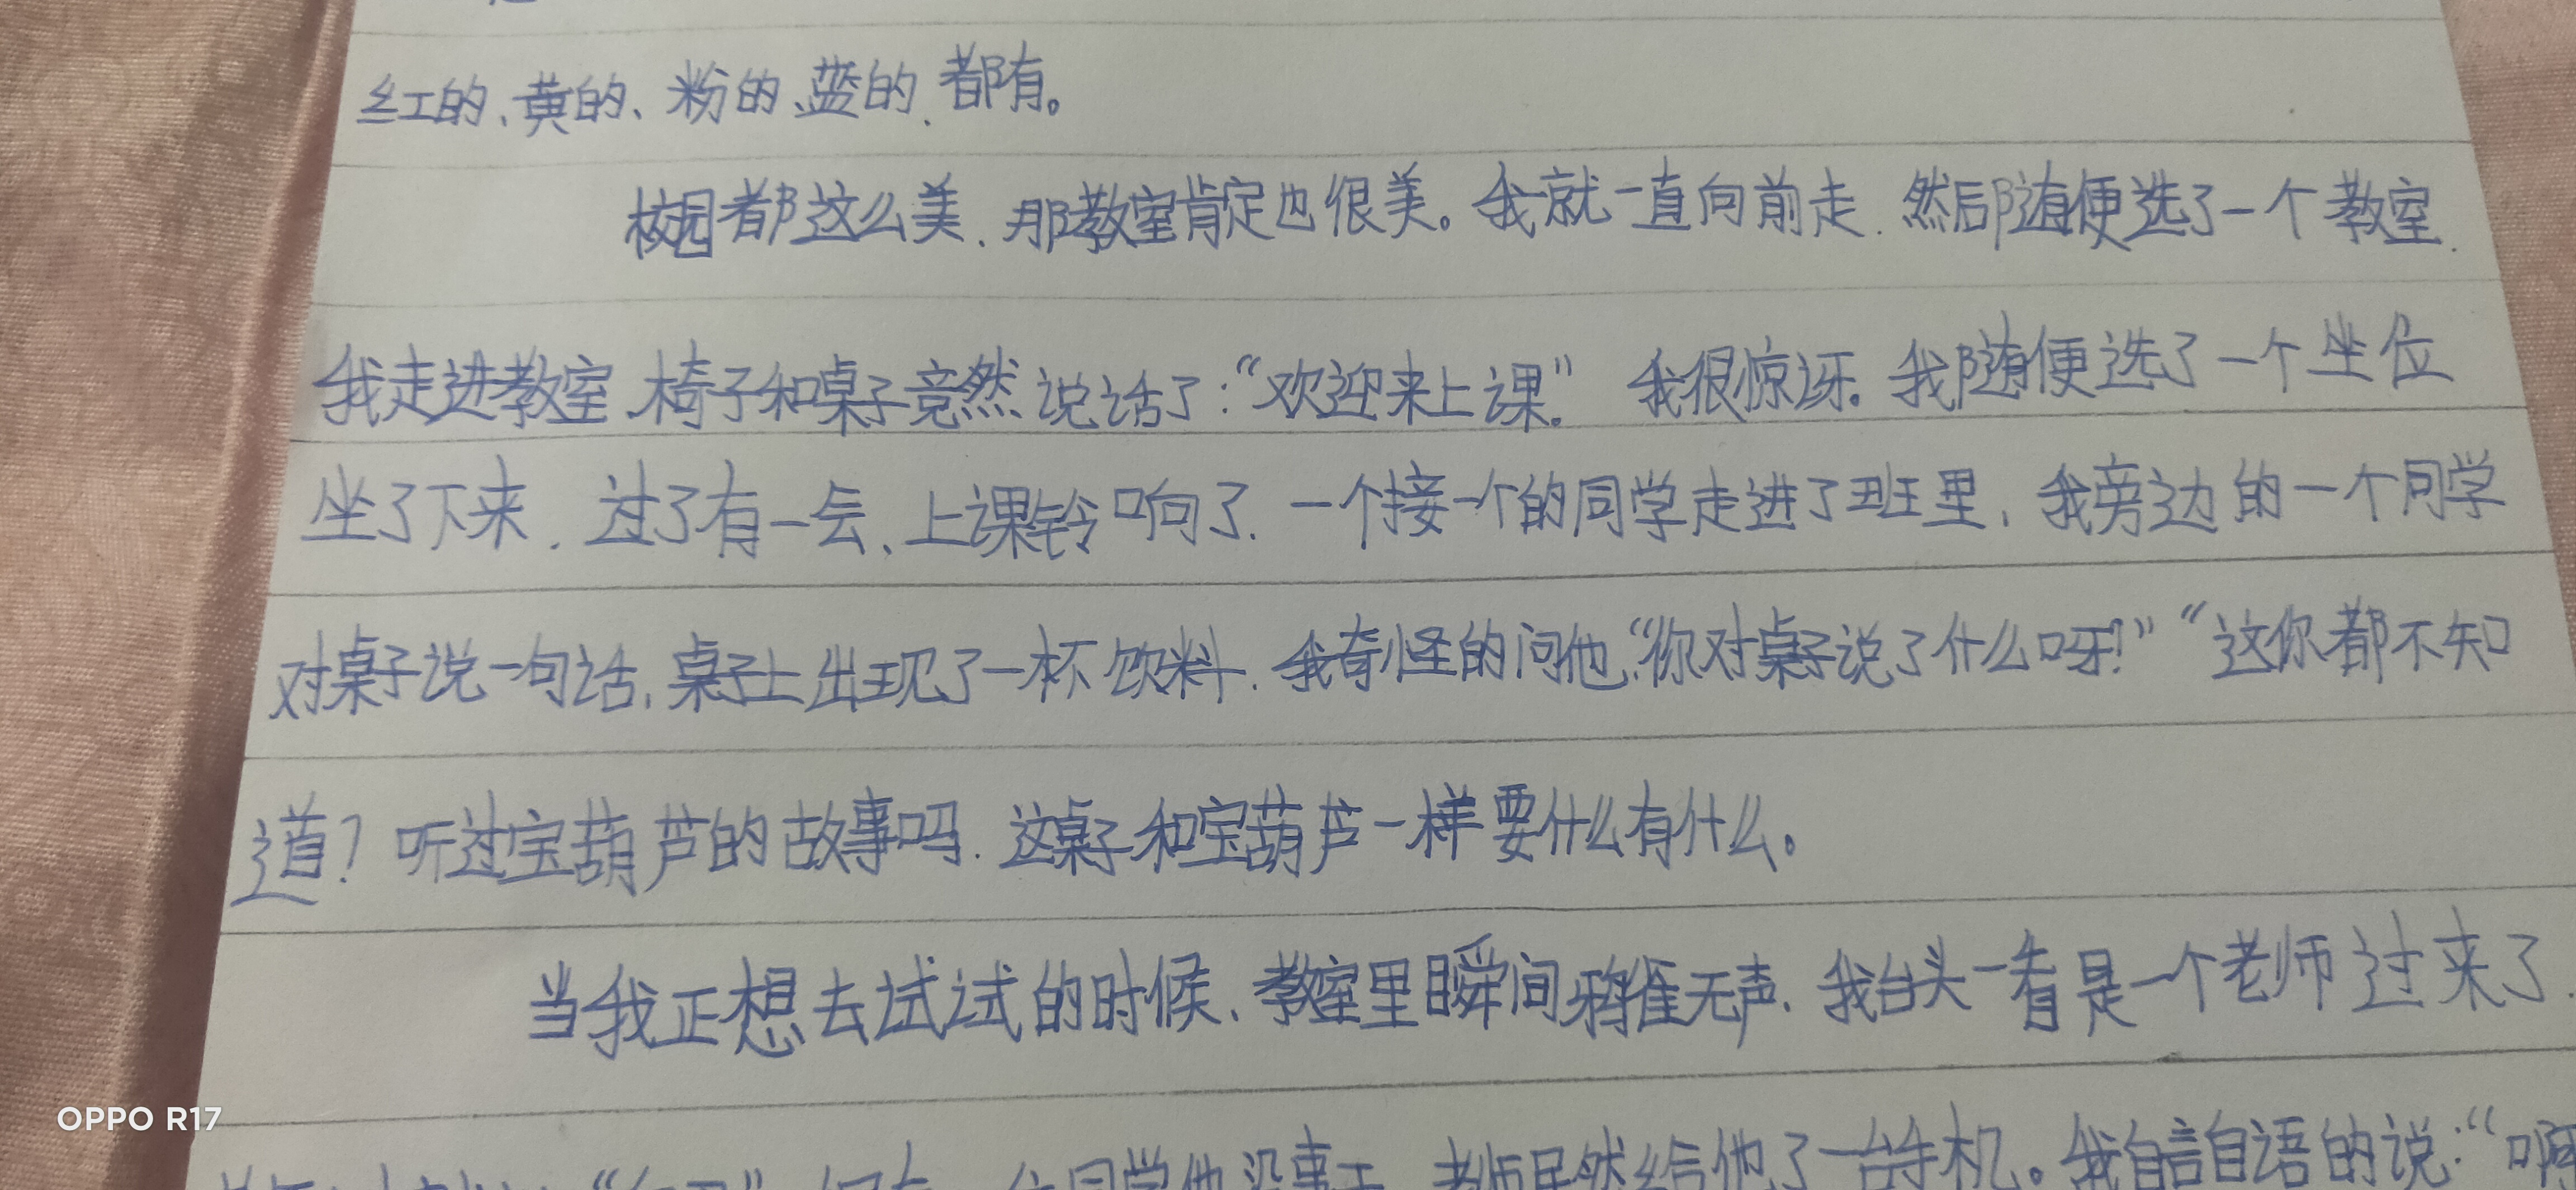 红的、黄的、粉的、蓝的、都有。
校园都这么美、那教室肯定也很美。我就一直向前走、然后随便选了一个教室、
我走进教室、椅子和桌子竟然说话了:“欢迎来上课。”我很惊讶。我随便选了一个坐位
坐了下来、过了有一会、上课铃响了、一个接一个的同学走进了班里,我旁边的一个同学
对桌子说一句话,桌子上出现了一杯饮料、我奇怪的问他:“你对桌子说了什么呀!”“这你都不知
道?听过宝葫芦的故事吗、这桌子和宝葫芦一样要什么有什么。
当我正想去试试的时候、教室里瞬间鸦雀无声、我台头一看是一个老师过来了、
同学他没事干、老师居然给他了一台手机。我自言自语的说:“啊
OPPO R17